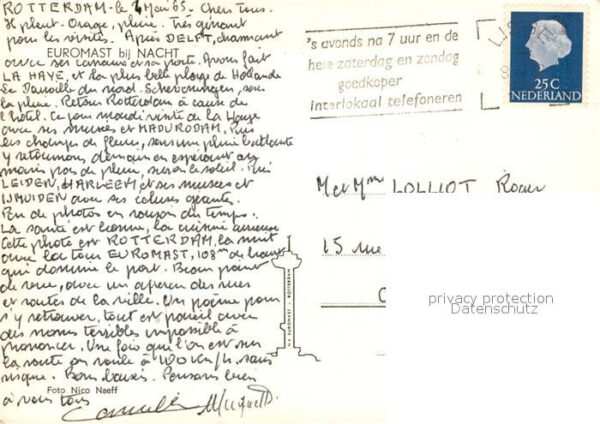 ROTTERDAM - le 4 Mai 65 - Chers Tous.
Il pleut. Orage, pluie. Très gênant
pour les visites. Après DELFT, charmant
EUROMAST bij NACHT
avec ses canaux et sa porte. Avons fait
LA HAYE, et la plus belle plage de Hollande
Le Dauville du nord. Scheveningen, sous
la pluie. Retour Rotterdam à cause de
l'hôtel. Ce jour mardi visite de la Haye
avec ses musées et MADURODAM, Puis
les champs de fleurs, sous une pluie battante
y retournons demain en espérant au
moins pas de pluie, sinon le soleil. Puis
LEIDEN, HARLEEM et ses musées et
IJMUIDEN avec ses écluses géantes.
Peu de photos en raison du temps.
La santé est bonne, la cuisine
Cette photo est ROTTERDAM, la nuit
avec la tour EUROMAST, 108m de haut
qui domine le port. Beau point
de vue, avec un aperçu des rues
et routes de la ville. Un poème pour
s'y retrouver, tout est pareil avec
des noms terribles impossible à
prononcer. Une fois qu'l'on est sur
la route on roule à 100 Km/h. sans
risque. Bons baisers. Pensons bien
Foto Nico Naeff
à vous tous
's avonds na 7 uur en de
hele zaterdag en zondag
goedkoper
interlokaal telefoneren
25 C
NEDERLAND
M et Mme LOLLIOT Roger
15 rue
EUROMAST - ROTTERDAM
privacy protection
Datenschutz